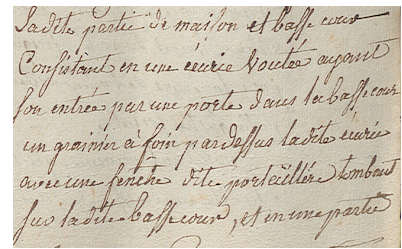 Ladite partie de maison et basse cour
Consistant en une écurie Voutée ayant
son entrée par une porte dans la basse cour
un grainier à foin par dessus ladite écurie
avec une fenêtre dite portaillére tombant
sur ladite basse cour, et en une partie